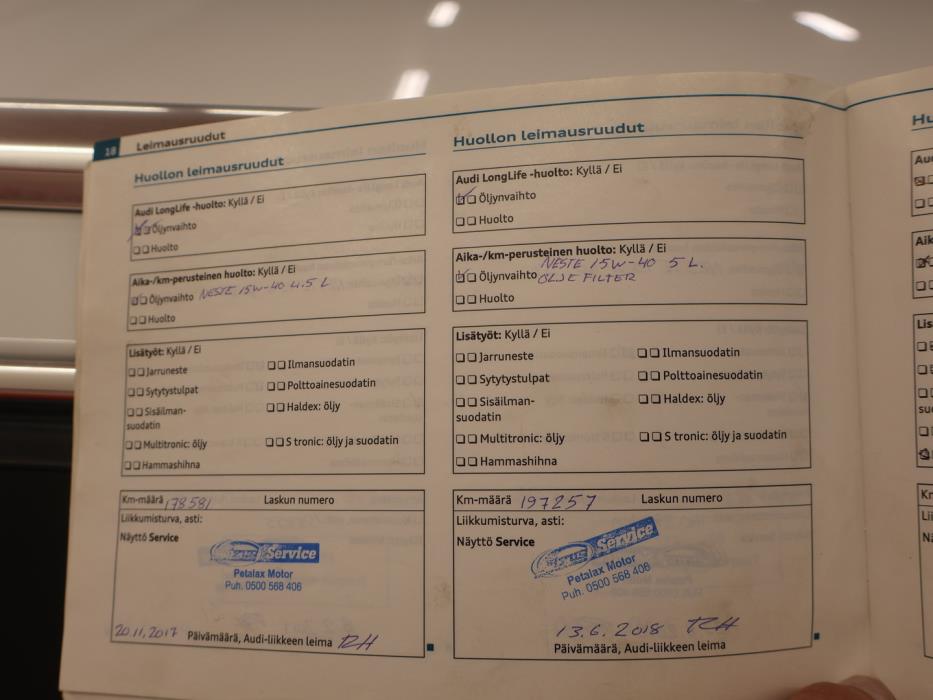 18 Leimausruudut
Huollon leimausruudut
Audi LongLife -huolto: Kyllä / Ei
Öljynvaihto
Huolto
Aika-/km-perusteinen huolto: Kyllä / Ei
Öljynvaihto NESTE 15W-40 4.5 L
Huolto
Lisätyöt: Kyllä / Ei
Jarruneste
Ilmansuodatin
Sytytystulpat
Polttoainesuodatin
Sisäilman-
suodatin
Haldex: öljy
Multitronic: öljy
S tronic: öljy ja suodatin
Hammashihna
Km-määrä 178581 Laskun numero
Liikkumisturva, asti:
Näyttö Service
Service
Petalax Motor
Puh. 0500 568 406
20.11.2017 Päivämäärä, Audi-liikkeen leima
Huollon leimausruudut
Audi LongLife -huolto: Kyllä / Ei
Öljynvaihto
Huolto
Aika-/km-perusteinen huolto: Kyllä / Ei
NESTE 15W-40 5 L.
Öljynvaihto
ÖLJE FILTER
Huolto
Lisätyöt: Kyllä / Ei
Jarruneste
Ilmansuodatin
Sytytystulpat
Polttoainesuodatin
Sisäilman-
suodatin
Haldex: öljy
Multitronic: öljy
S tronic: öljy ja suodatin
Hammashihna
Km-määrä 197257 Laskun numero
Liikkumisturva, asti:
Näyttö Service
Service
Petalax Motor
Puh. 0500 568 406
13.6.2018
Päivämäärä, Audi-liikkeen leima